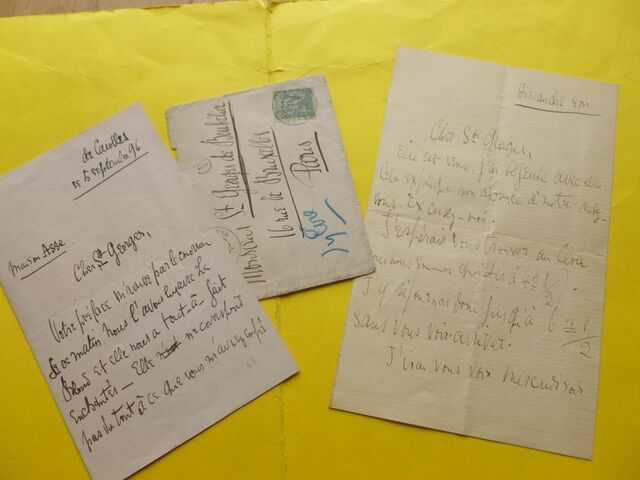 de Carolles
ce 5 septembre 96
maison Asse
Cher St Georges,
Votre préface m'arrive par le courrier
de ce matin nous l'avons lu avec Le
Blond et elle nous a tout-à-fait
enchantés – Elle ne correspond
pas du tout à ce que vous m'aviez
Monsieur St Georges de Bouhélier
16 rue de Bruxelles
Paris
Dimanche soir
Cher St Georges,
vous, j'ai déjeuné avec
Cela explique mon absence à notre
vous. Excusez-moi.
J'espérais vous trouver au
nous sommes à 4h 1/2
J'y séjournai donc jusqu'à 6h 1/2
sans vous voir arriver.
J'irai vous voir mercredi soir